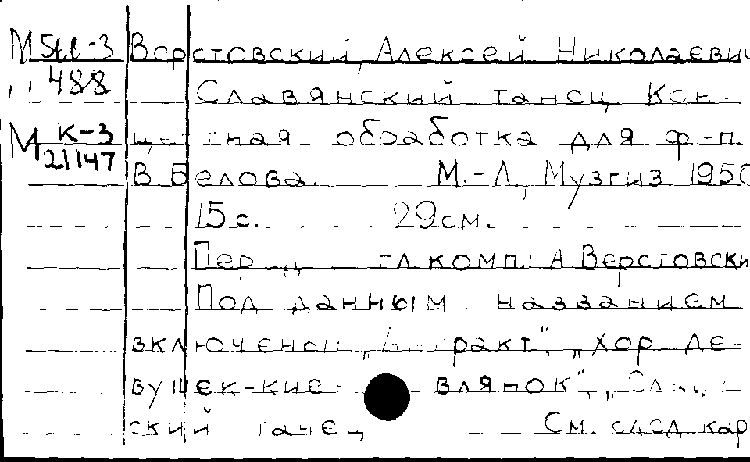 М 541-3 Верстовский, Алексей Николаевич
488 Славянский танец. Кон-
М К-3 цертная обработка для ф-п.
21147 В Белова. М.-Л., Музгиз 1950
15с. 29см.
Пер гл комп.: А Верстовски
Под данным названием
включены „Антракт", „Хор де-
вушек-кие влянок", „Слав
ский танец См. след кар